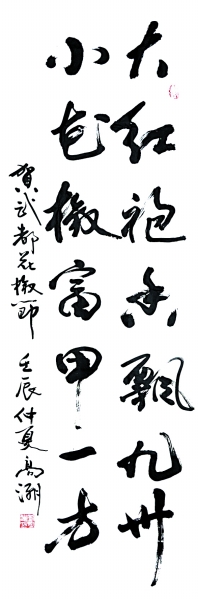 大红袍香飘九州
小花椒富甲一方
贺武都花椒节 壬辰仲夏 高潮